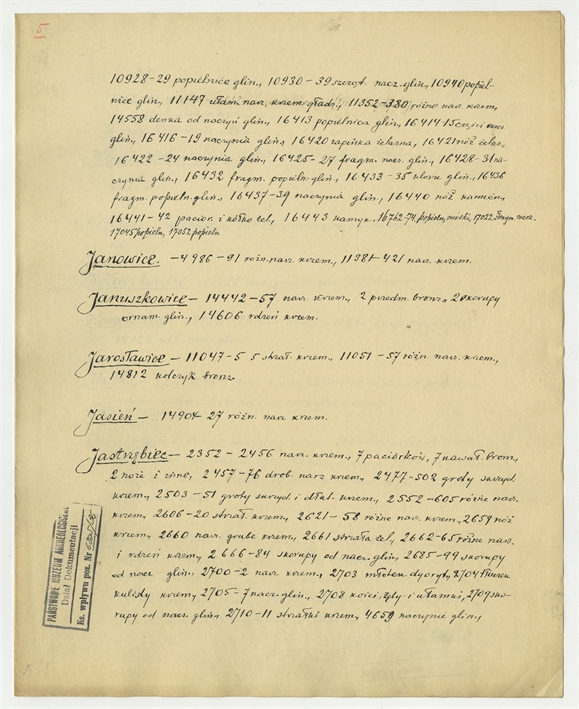 5
10928-29 popielnice glin., 10930-39 szcząt. nacz. glin., 10940 popiel-
nice glin., 11147 ułam. narz. krzem. gładz., 11352-380 różne narz. krzem.
14558 denka od naczyń glin., 16413 popielnica glin., 16414-15 części nacz.
glin., 16416-19 naczynia glin., 16420 zapinka żelazna, 16421 nóż żelaz.,
16422-24 naczynia glin., 16425-27 fragm. nacz. glin., 16428-31 na-
czynia glin., 16432 fragm. popieln. glin., 16433-35 glin., 16436
fragm. popieln. glin., 16437-39 naczynia glin., 16440 nóż kamien.,
16441-42 pacior. i kółko żel., 16443 kamyk. 16762-74 popieln., miski, 17022
17045 popieln., 17052 popieln.
Janowice. - 4986-91 różn. narz. krzem., 11381-421 narz. krzem.
Januszkowice - 14442-57 narz. krzem., 2 przedm. bronz., 2 skorupy
ornam. glin., 14606 rdzeń krzem.
Jarosławice - 11047-5 5 strzał. krzem., 11051-57 różn. narz. krzem.,
14812 kolczyk bronz.
Jasień - 14904-27 różn. narz. krzem.
Jastrzębiec - 2352-2456 narz. krzem., 7 paciorków, 7 kawał. bronz.,
2 noże i inne, 2457-76 drob. narz. krzem., 2477-502 groty skrzyd.
krzem., 2503-51 groty skrzyd. i dłut. krzem., 2552-605 różne narz.
krzem., 2606-20 strzał. krzem., 2621-58 różne narz. krzem., 2659 nóż
krzem., 2660 narz. grube krzem., 2661 strzała żel., 2662-65 różne narz.
i rdzeń krzem., 2666-84 skorupy od nacz. glin., 2685-99 skorupy
od nacz. glin., 2700-2 narz. krzem., 2703 młotek dyoryt., 2704
kulisty krzem., 2705-7 nacz. glin., 2708 kości, zęby i ułamki, 2709 sko-
rupy od nacz. glin., 2710-11 strzałki krzem., 4659 naczynie glin.,
PAŃSTWOWE MUZEUM ARCHEOLOGICZNE
Dział Dokumentacji
Ks. wpływu poz. Nr